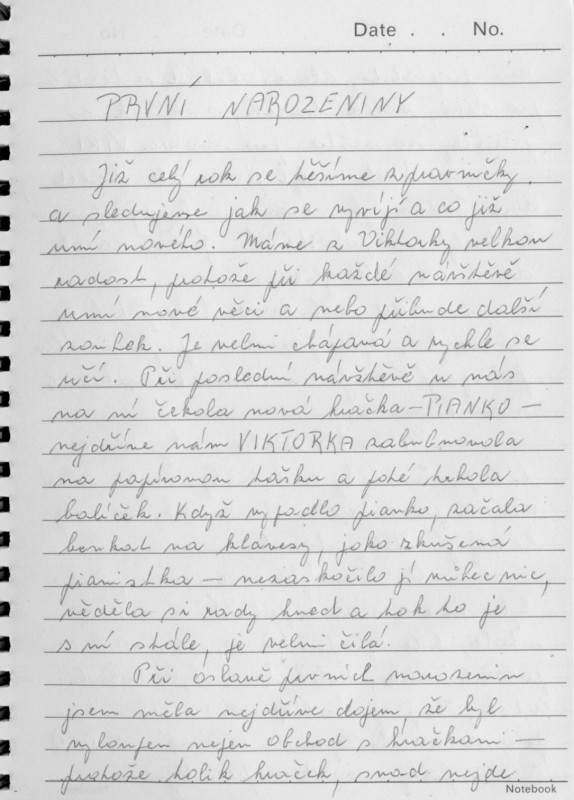 Date . . No.
PRVNÍ NAROZENINY
Již celý rok se těšíme z pravnučky
a sledujeme jak se vyvíjí a co již
umí nového. Máme z Viktorky velkou
radost, protože při každé návštěvě
umí nové věci a nebo přibude další
zoubek. Je velmi chápavá a rychle se
učí. Při poslední návštěvě u nás
na ní čekala nová hračka – PIANKO –
nejdříve nám VIKTORKA zabubnovala
na papírovou tašku a poté trhala
balíček. Když vypadlo pianko, začala
bouchat na klávesy, jako zkušená
pianistka – nezaskočilo jí vůbec nic,
věděla si rady hned a tak to je
s ní stále, je velmi čilá.
Při oslavě prvních narozenin
jsem měla nejdříve dojem, že byl
vyloupen nejen obchod s hračkami –
protože tolik hraček, snad nejde
Notebook